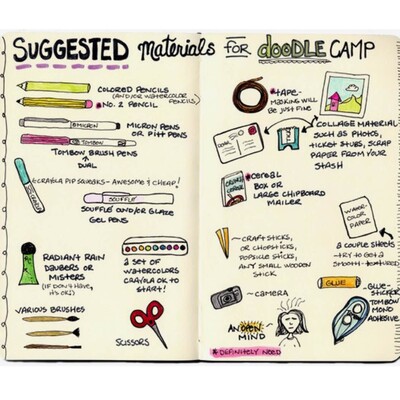 SUGGESTED Materials FOR dOODLE CAMP
COLORED PENCILS
(AND/OR WATERCOLOR PENCILS)
*NO. 2 PENCIL
MICRON
MICRON PENS
OR PITT PENS
TOMBOW
TOMBOW BRUSH PENS
DUAL
CRAYOLA PIP SQUEAKS - AWESOME & CHEAP!
SOUFFLÉ
SOUFFLÉ AND/OR GLAZE
GEL PENS
RADIANT RAIN
DAUBERS OR
MISTERS
(IF DON'T HAVE,
IT'S OK!)
A SET OF
WATERCOLORS
CRAYOLA OK TO
START!
VARIOUS BRUSHES
SCISSORS
*TAPE-
MASKING WILL
BE JUST FINE
COLLAGE MATERIAL
SUCH AS PHOTOS,
TICKET STUBS, SCRAP
PAPER FROM YOUR
STASH
*CEREAL
BOX OR
LARGE CHIPBOARD
MAILER
WATER-
COLOR
PAPER
A COUPLE SHEETS
-TRY TO GET A
SMOOTH-TEXTURED
CRAFT STICKS,
OR CHOPSTICKS,
POPSICLE STICKS,
ANY SMALL WOODEN
STICK
CAMERA
GLUE
-GLUE-
STICK OR
TOMBOW
MONO
ADHESIVE
AN OPEN
MIND
*DEFINITELY NEED